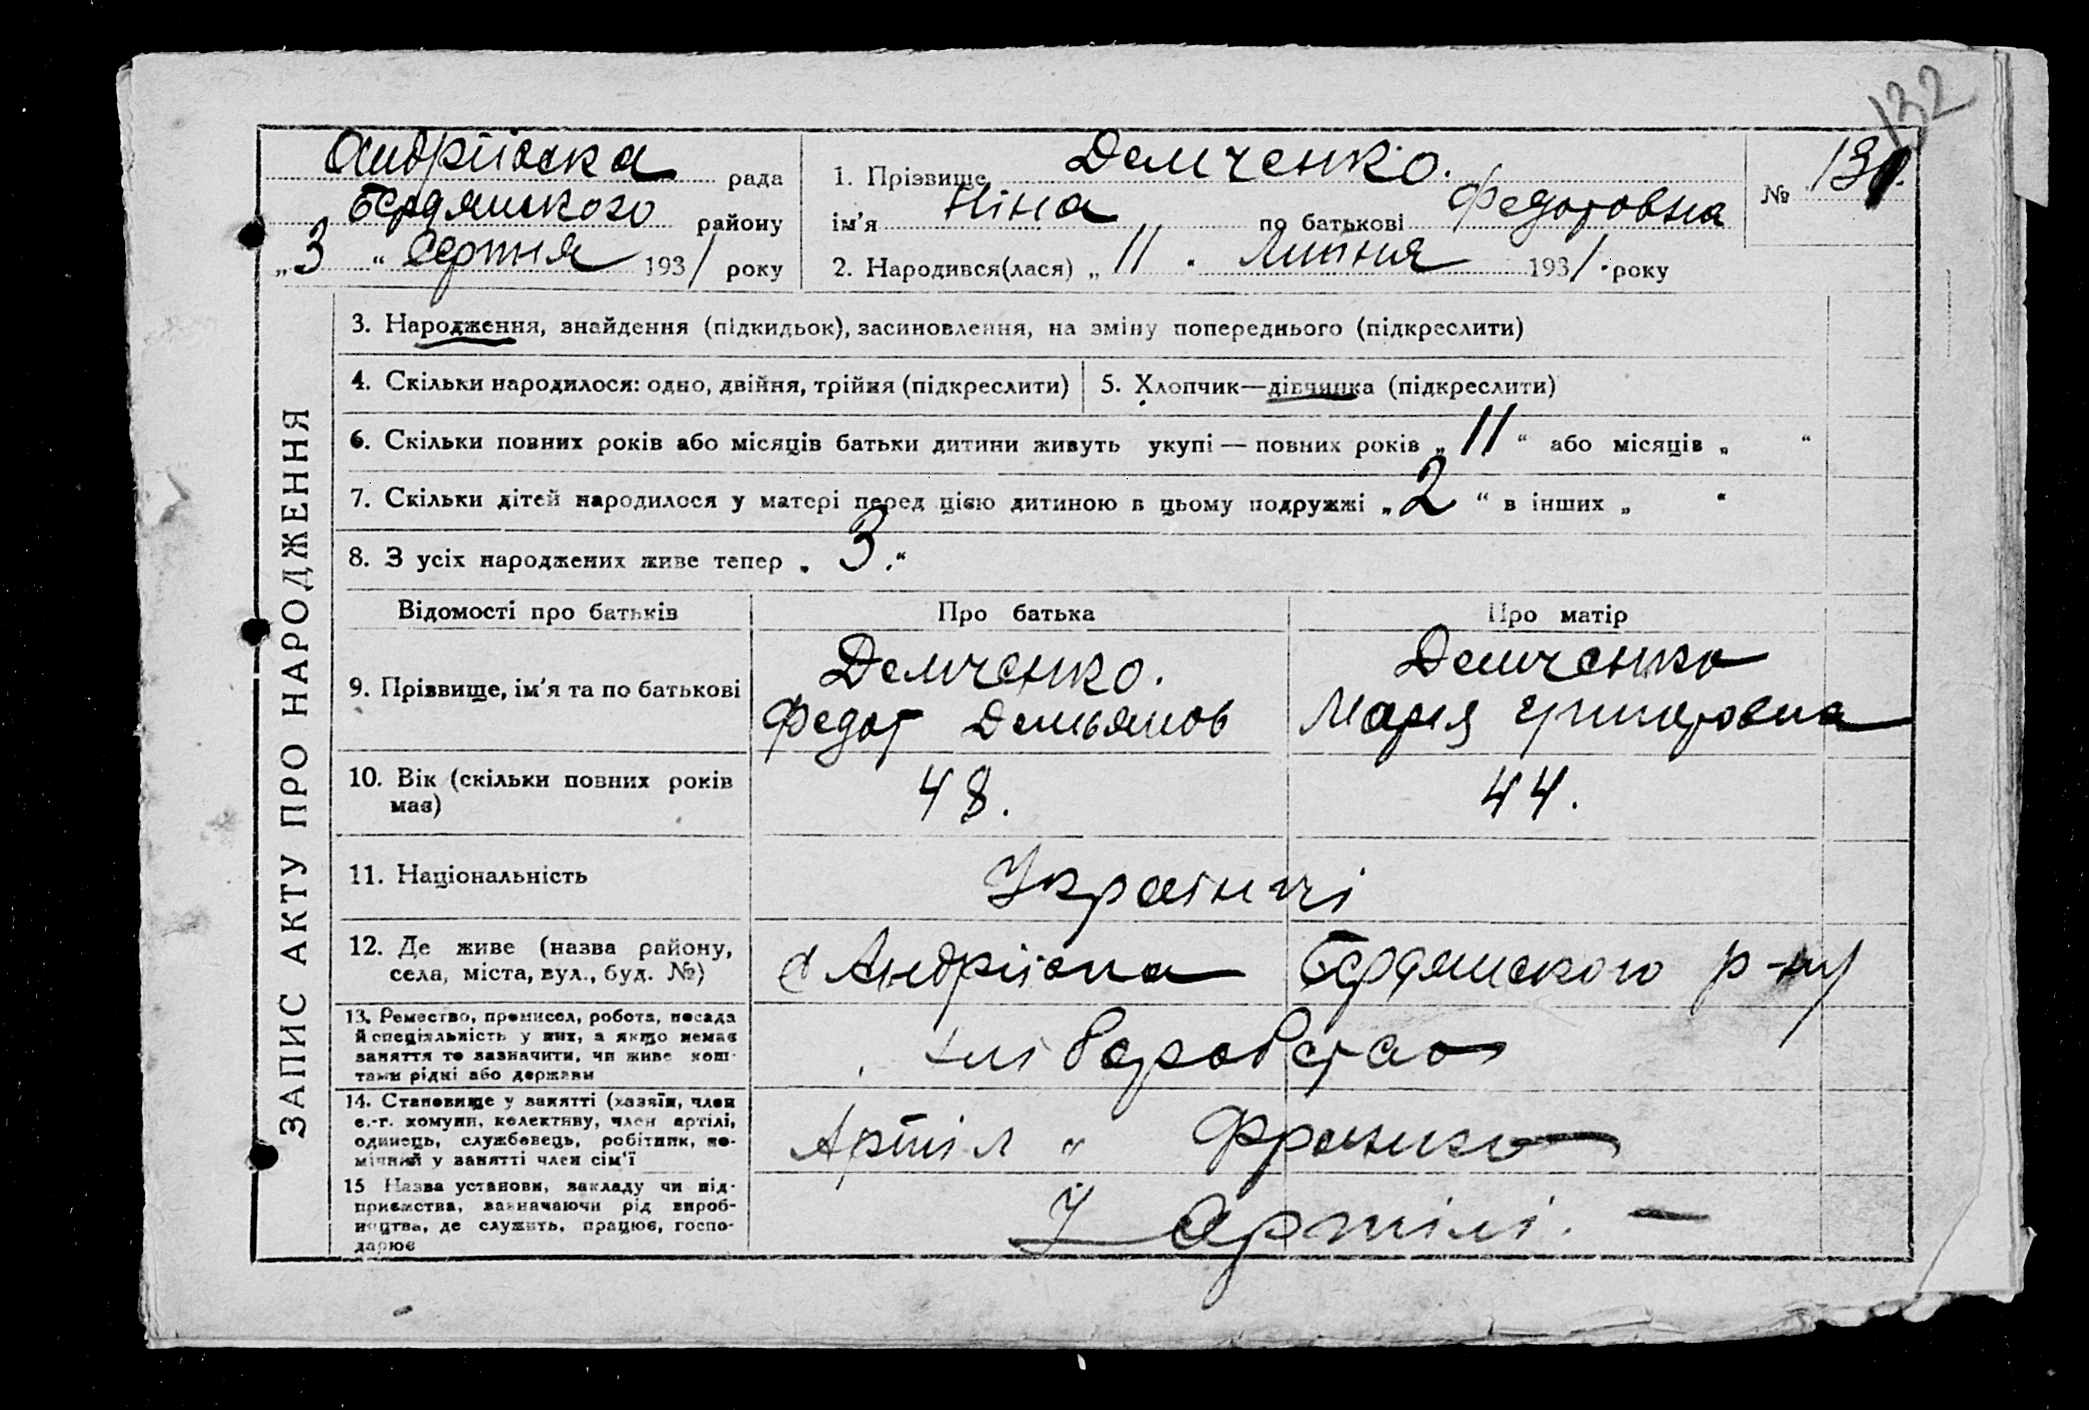 132
Андріівска рада
Бердянського району
„3" Серпня 1931 року
1. Прізвище Демченко.
ім'я Ніна по батькові Федотовна
2. Народився(лася) „11. Липня 1931. року
№ 131.
ЗАПИС АКТУ ПРО НАРОДЖЕННЯ
3. Народження, знайдення (підкидьок), засиновлення, на зміну попереднього (підкреслити)
4. Скільки народилося: одно, двійня, трійня (підкреслити)
5. Хлопчик—дівчинка (підкреслити)
6. Скільки повних років або місяців батьки дитини живуть укупі — повних років „11" або місяців „ "
7. Скільки дітей народилося у матері перед цією дитиною в цьому подружжі „2" в інших „ "
8. З усіх народжених живе тепер „3."
Відомості про батьків
Про батька
Про матір
9. Прізвище, ім'я та по батькові
Демченко.
Федот Демьянов
Демченко
Марія Григоровна
10. Вік (скільки повних років
має)
48.
44.
11. Національність
Українці
12. Де живе (назва району,
села, міста, вул., буд. №)
с Андріівка Бердянського р-ну
13. Ремество, промисел, робота, посада
й спеціяльність у них, а якщо немає
заняття то зазначити, чи живе кош-
тами рідні або держави
хліборобство
14. Становище у занятті (хазяїн, член
с.-г. комуни, колективу, член артілі,
одинець, службовець, робітник, по-
мічний у занятті член сім'ї
Артіл „ Франко
15 Назва установи, закладу чи під-
приємства, зазначаючи рід вироб-
ництва, де служить, працює, госпо-
дарює
У Артілі. —